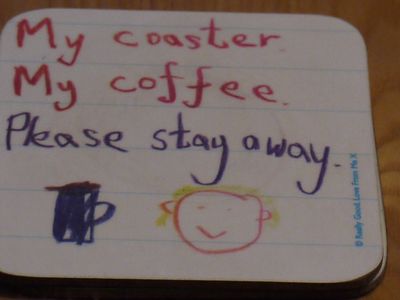 My coaster.
My coffee.
Please stay away.
© Really Good. Love From Me X